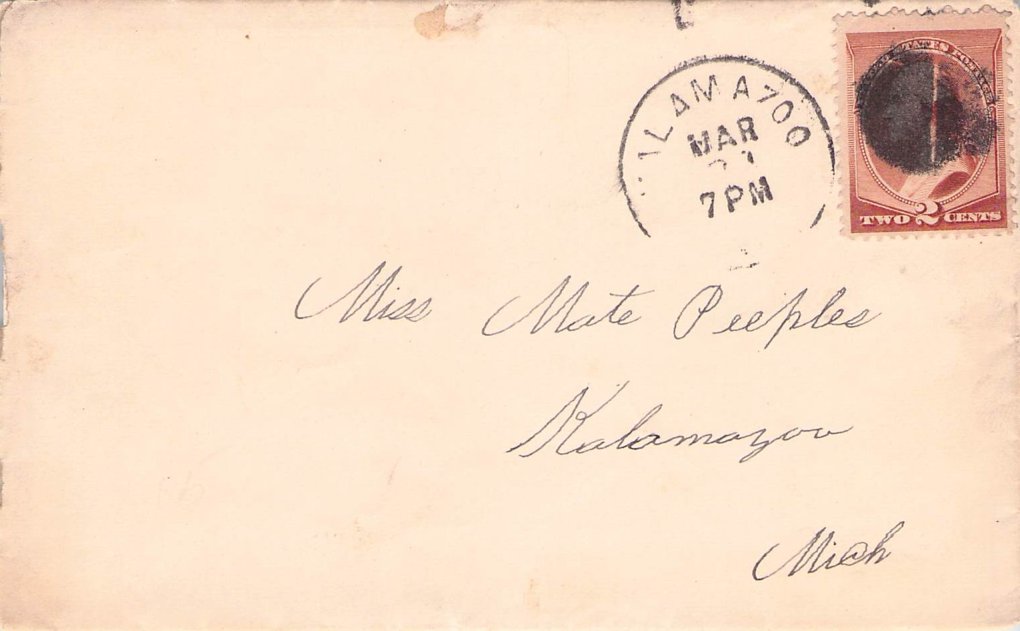 KALAMAZOO
MAR
7 PM
UNITED STATES POSTAGE
TWO 2 CENTS
Miss Mate Peeples
Kalamazoo
Mich